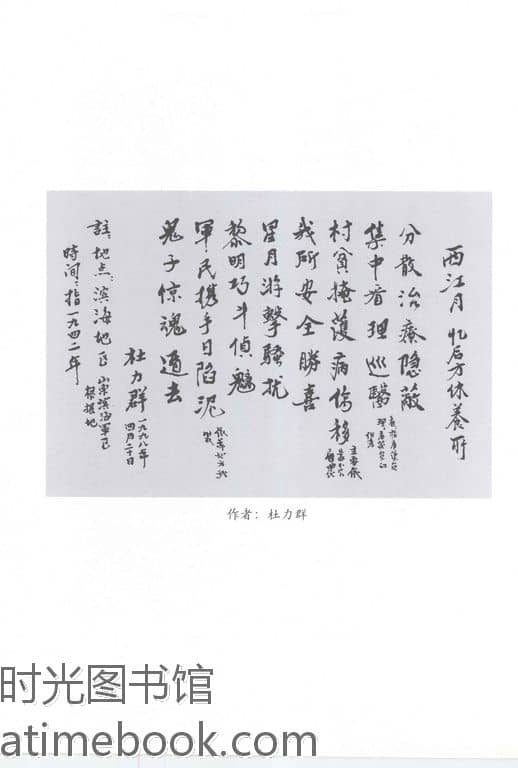 西江月 忆后方休养所
分散治療隐蔽
集中看理巡醫
村貧掩護病伤移
我所安全勝喜
星月游擊騷扰
黎明巧斗偵魑
軍民携手日陷泥
鬼子惊魂遁去
杜力群 一九九八年
四月二十日
註:地点:滨海地区 山东滨海軍区
根据地
時间:指一九四二年
作者:杜力群
时光图书馆
atimebook.com